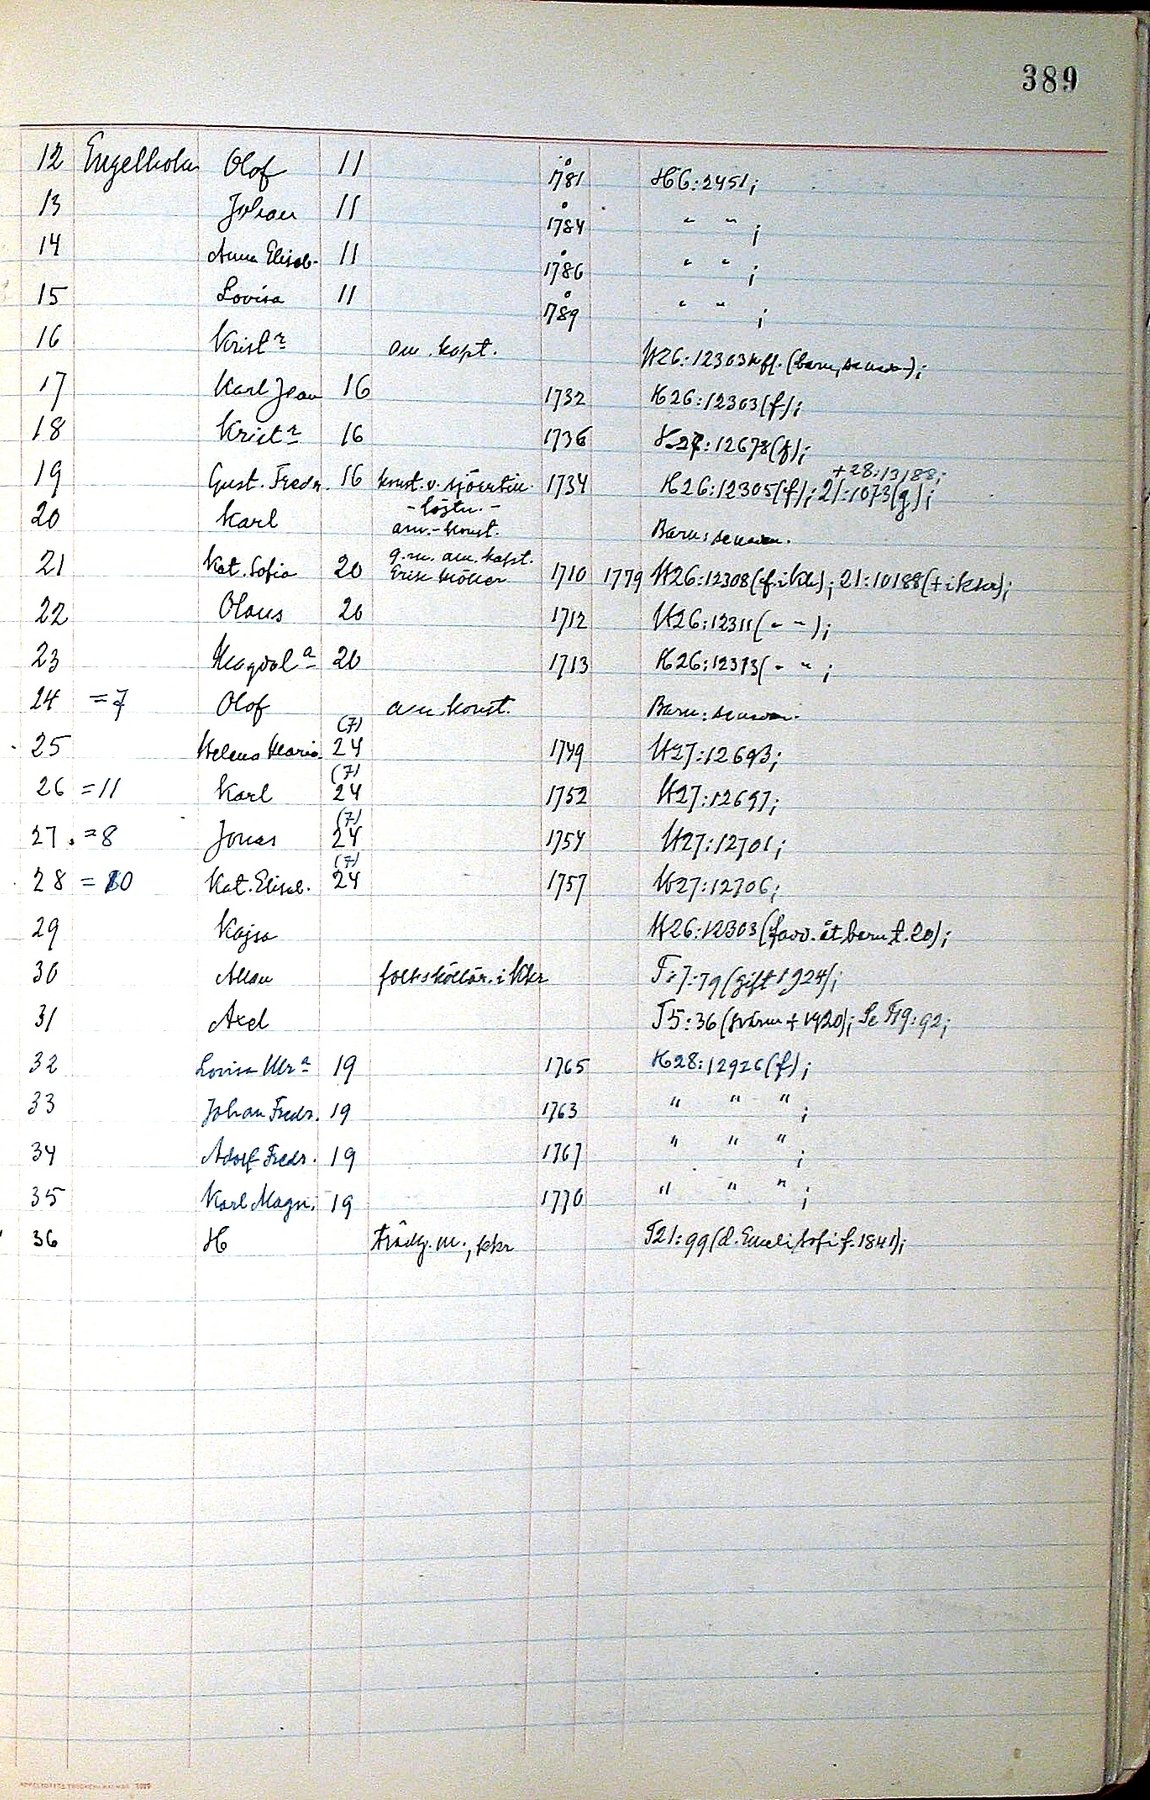 389
12 Engelholm Olof 11 å 1781 H6:2451;
13 Johan 11 å 1784 " " ;
14 Anna Elisab. 11 å 1786 " " ;
15 Lovisa 11 å 1789 " " ;
16 Krist:r am. kapt. H26:12303 (barn, senare);
17 Karl Jean 16 1732 H26:12303(f);
18 Krist:r 16 1736 12678(f);
19 Gust. Fredr. 16 konst. v. sjöartill. 1734 H26:12305(f); 21:1073(g); +28:13188;
-löjtn.-
20 Karl am.-konst. Barn: senare.
21 Kat. Sofia 20 g.m. am. kapt. Erik Möller 1710 1779 H26:12308(f. i Kkr); 21:10188(+ i Kkr);
22 Olaus 20 1712 H26:12311(- -);
23 Magdal:a 20 1713 H26:12313(- " ;
24 =7 Olof am. konst. Barn: senare.
25 Helena Maria (7) 24 1749 H27:12693;
26 =11 Karl (7) 24 1752 H27:12697;
27. =8 Jonas (7) 24 1754 H27:12701;
28 =10 Kat. Elisab. (7) 24 1757 H27:12706;
29 Kajsa H26:12303 (fadd. åt barn t. 20);
30 Allan folkskollär. i Kkr T:7:79 (gift 1924);
31 Axel T5:36 (+ 1920); Se T19:92;
32 Lovisa Ulr:a 19 1765 H28:12926(f);
33 Johan Fredr. 19 1763 " " " ;
34 Adolf Fredr. 19 1767 " " " ;
35 Karl Magn. 19 1770 " " " ;
36 H trädg. m., Kkr T21:99 (d. Emeli Sofi f. 1841);